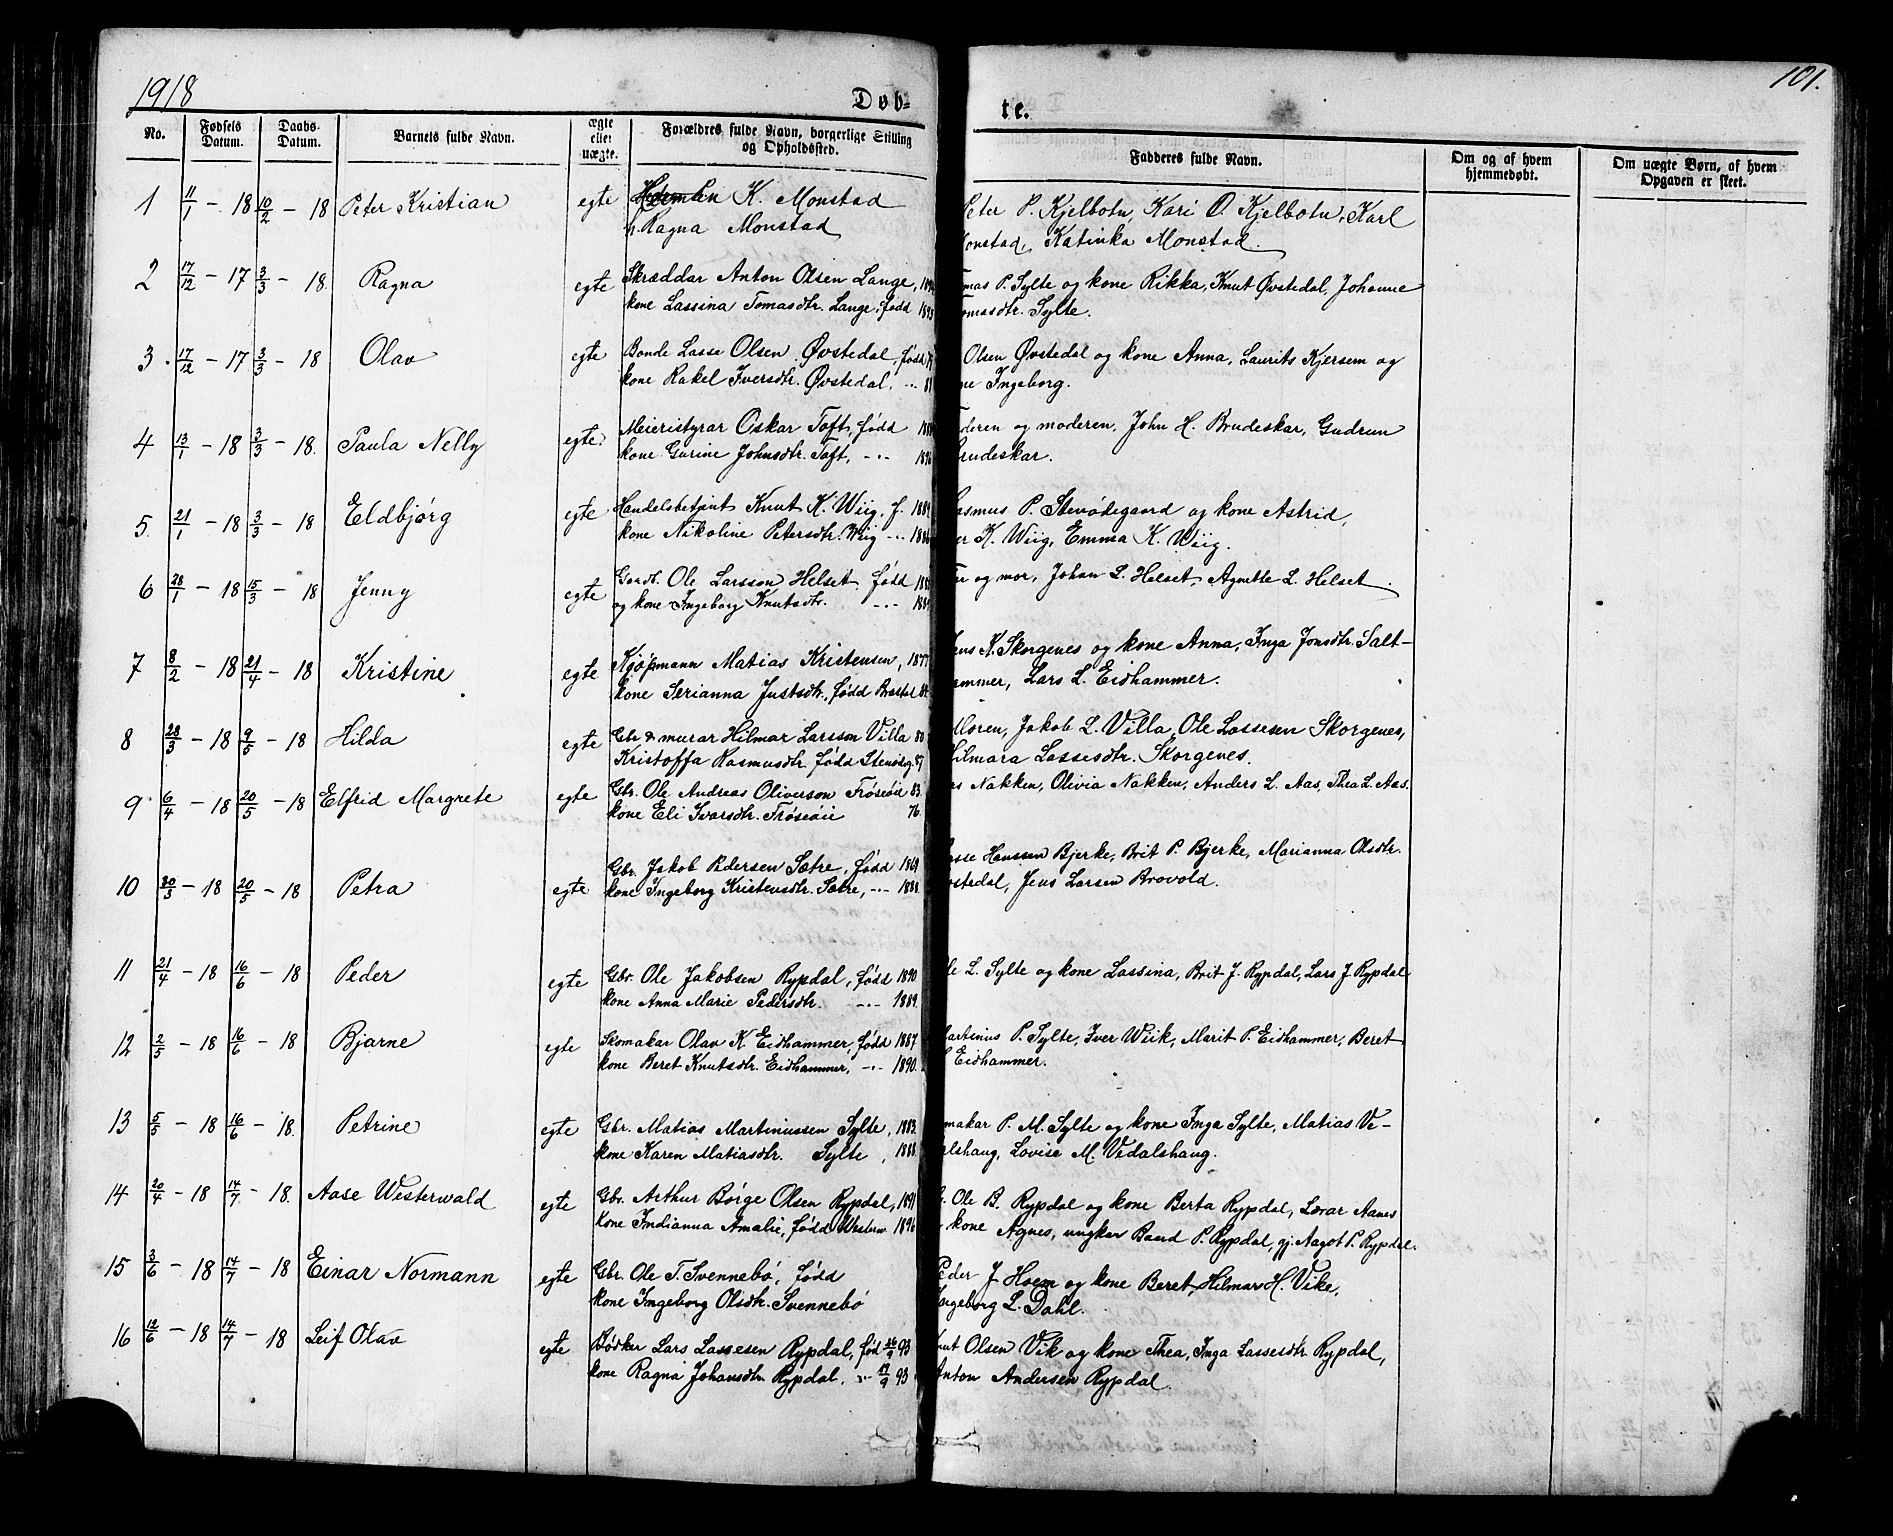 1918
101.
Døb-
te.
No.
Fødsels Datum.
Daabs-Datum.
Barnets fulde Navn.
ægte eller uægte.
Forældres fulde Navn, borgerlige Stilling og Opholdssted.
Fadderes fulde Navn.
Om og af hvem hjemmedøbt.
Om uægte Børn, af hvem Opgaven er skeet.
1 11/1 - 18 10/2 - 18 Peter Kristian egte K. Monstad
h. Ragna Monstad
Peter P. Kjelbotn, Kari O. Kjelbotn, Karl
Monstad, Katinka Monstad.
2 17/12 - 17 3/3 - 18. Ragna egte Skræddar Anton Olsen Lange,
kone Lassina Tomasdtr. Lange, fødd 1893
P. Sylte og kone Rikka, Knut Øvstedal, Johanne
Tomasdtr. Sylte.
3. 17/12 - 17 3/3 - 18 Olav egte Bonde Lasse Olsen Øvstedal, fødd
kone Rakel Iversdtr. Øvstedal, -"- 81
Olsen Øvstedal og kone Anna, Laurits Kjersem og
Ingeborg.
4 13/1 - 18 3/3 - 18. Paula Nelly egte Meieristyrar Oskar Toft, fødd
kone Gurine Johnsdtr. Toft, -"- 1896
og moderen, John H. Brudeskar, Gudrun
Brudeskar.
5. 21/1 - 18 3/3 - 18 Eldbjørg egte Handelsbetjent Knut K. Wiig, f. 1889
kone Nikoline Petersdtr. Wiig -"- 1886
Rasmus P. Stevødegaard og kone Astrid,
K. Wiig, Emma K. Wiig.
6 28/1 - 18 15/3 - 18 Jenny egte Gardb. Ole Larsson Helset, fødd
og kone Ingeborg Knutsdtr. -"-
og mor, Johan L. Helset, Agnethe L. Helset.
7 8/2 - 18 21/4 - 18 Kristine egte Kjøpmann Matias Kristensen, 1877
kone Serianna Justsdtr., fødd
K. Skorgenes og kone Anna, Inga Jonsdtr. Salt-
hammer, Lars L. Eidhammer.
8 28/3 - 18 9/5 - 18 Hilda egte Gbr & murar Hilmar Larsson Villa 80
Kristoffa Rasmusdtr. fødd Stenødeg. 87
Moren, Jakob L. Villa, Ole Lassesen Skorgenes,
Hilmara Lassesdtr. Skorgenes.
9 6/4 - 18 20/5 - 18 Elfrid Margrete egte Gbr. Ole Andreas Oliverson Trøseøie 83.
kone Eli Ivarsdtr. Trøseøie 76.
Nakken, Olivia Nakken, Anders L. Aas, Thea L. Aas.
10 20/3 - 18 20/5 - 18 Petra egte Gbr. Jakob Pedersen Sætre, fødd 1869
kone Ingeborg Kristensdtr. Sætre, -"- 1888.
Lasse Hanssen Bjerke, Brit P. Bjerke, Marianna Olsdtr.
Øvstedal, Jens Larsen Brovold.
11 21/4 - 18 16/6 - 18 Peder egte Gbr. Ole Jakobsen Rypdal, fødd 1890.
kone Anna Marie Pedersdtr. -"- 1889.
Ole L. Sylte og kone Lassina, Brit J. Rypdal, Lars J. Rypdal
12 2/5 - 18 16/6 - 18 Bjarne egte Skomakar Olav K. Eidhammer, fødd 1887
kone Beret Knutsdtr. Eidhammer, -"- 1890.
Martinus P. Sylte, Iver Wiik, Marit P. Eidhammer, Beret
Eidhammer.
13 5/5 - 18 16/6 - 18. Petrine egte Gbr. Matias Martinussen Sylte, 1883.
kone Karen Matiasdtr. Sylte, 1888.
Skomakar P. M. Sylte og kone Inga Sylte, Matias Ve-
dalshaug, Lovise M. Vedalshaug.
14 20/4 - 18 14/7 - 18. Aase Westerwald egte Gbr. Arthur Børge Olsen Rypdal, 1891
kone Indianna Amalie, fødd Western 1896
Ole B. Rypdal og kone Berta Rypdal, Lærar Aanes
kone Agnes, ungkar Baard P. Rypdal, gj. Aagot P. Rypdal.
15 3/6 - 18 14/7 - 18 Einar Normann egte Gbr. Ole T. Svennebø, fødd
kone Ingeborg Olsdtr. Svennebø
Peder J Hoem og kone Beret, Hilmar H. Vike,
Ingeborg L. Dahl.
16 12/6 - 18 14/7 - 18 Leif Olav egte Bødker Lars Lassesen Rypdal, fød 26/9 93
kone Ragna Johansdtr. Rypdal. -"- 93
Knut Olsen Vik og kone Thea, Inga Lassesdtr. Rypdal,
Anton Andersen Rypdal.